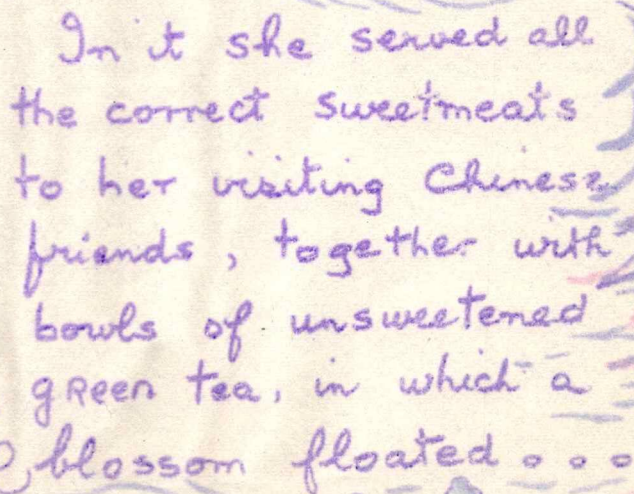 In it she served all
the correct sweetmeats
to her visiting Chinese
friends, together with
bowls of unsweetened
green tea, in which a
blossom floated...